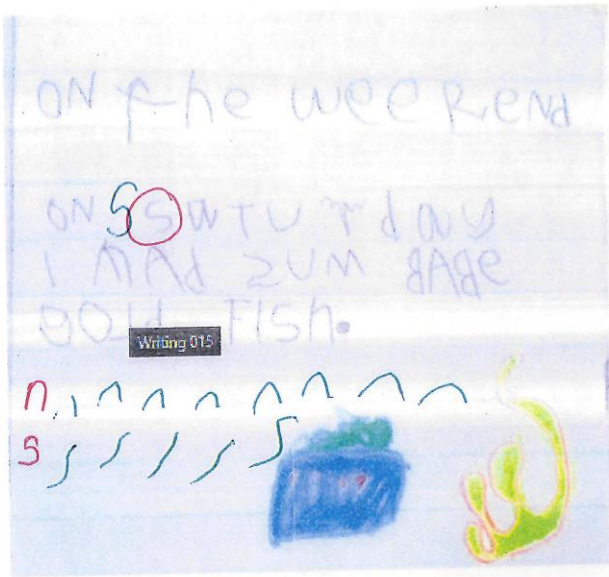 ON the weekend
ON S saturday
I HAd zum BABe
GOld FISh.
Writing 015
n
s